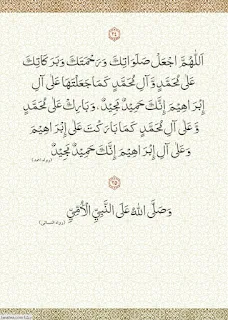 ٢٤
اَللّٰهُمَّ اجْعَلْ صَلَوَاتِكَ وَرَحْمَتَكَ وَبَرَكَاتِكَ
عَلٰى مُحَمَّدٍ وَّ آلِ مُحَمَّدٍ كَمَا جَعَلْتَهَا عَلٰى آلِ
إِبْرَاهِيْمَ إِنَّكَ حَمِيْدٌ مَّجِيْدٌ، وَبَارِكْ عَلٰى مُحَمَّدٍ
وَّ عَلٰى آلِ مُحَمَّدٍ كَمَا بَارَكْتَ عَلٰى إِبْرَاهِيْمَ
وَعَلٰى آلِ إِبْرَاهِيْمَ إِنَّكَ حَمِيْدٌ مَّجِيْدٌ (رواه احمد)
٢٥
وَصَلَّى اللهُ عَلَى النَّبِيِّ الْأُمِّيِّ (رواه النسائي)